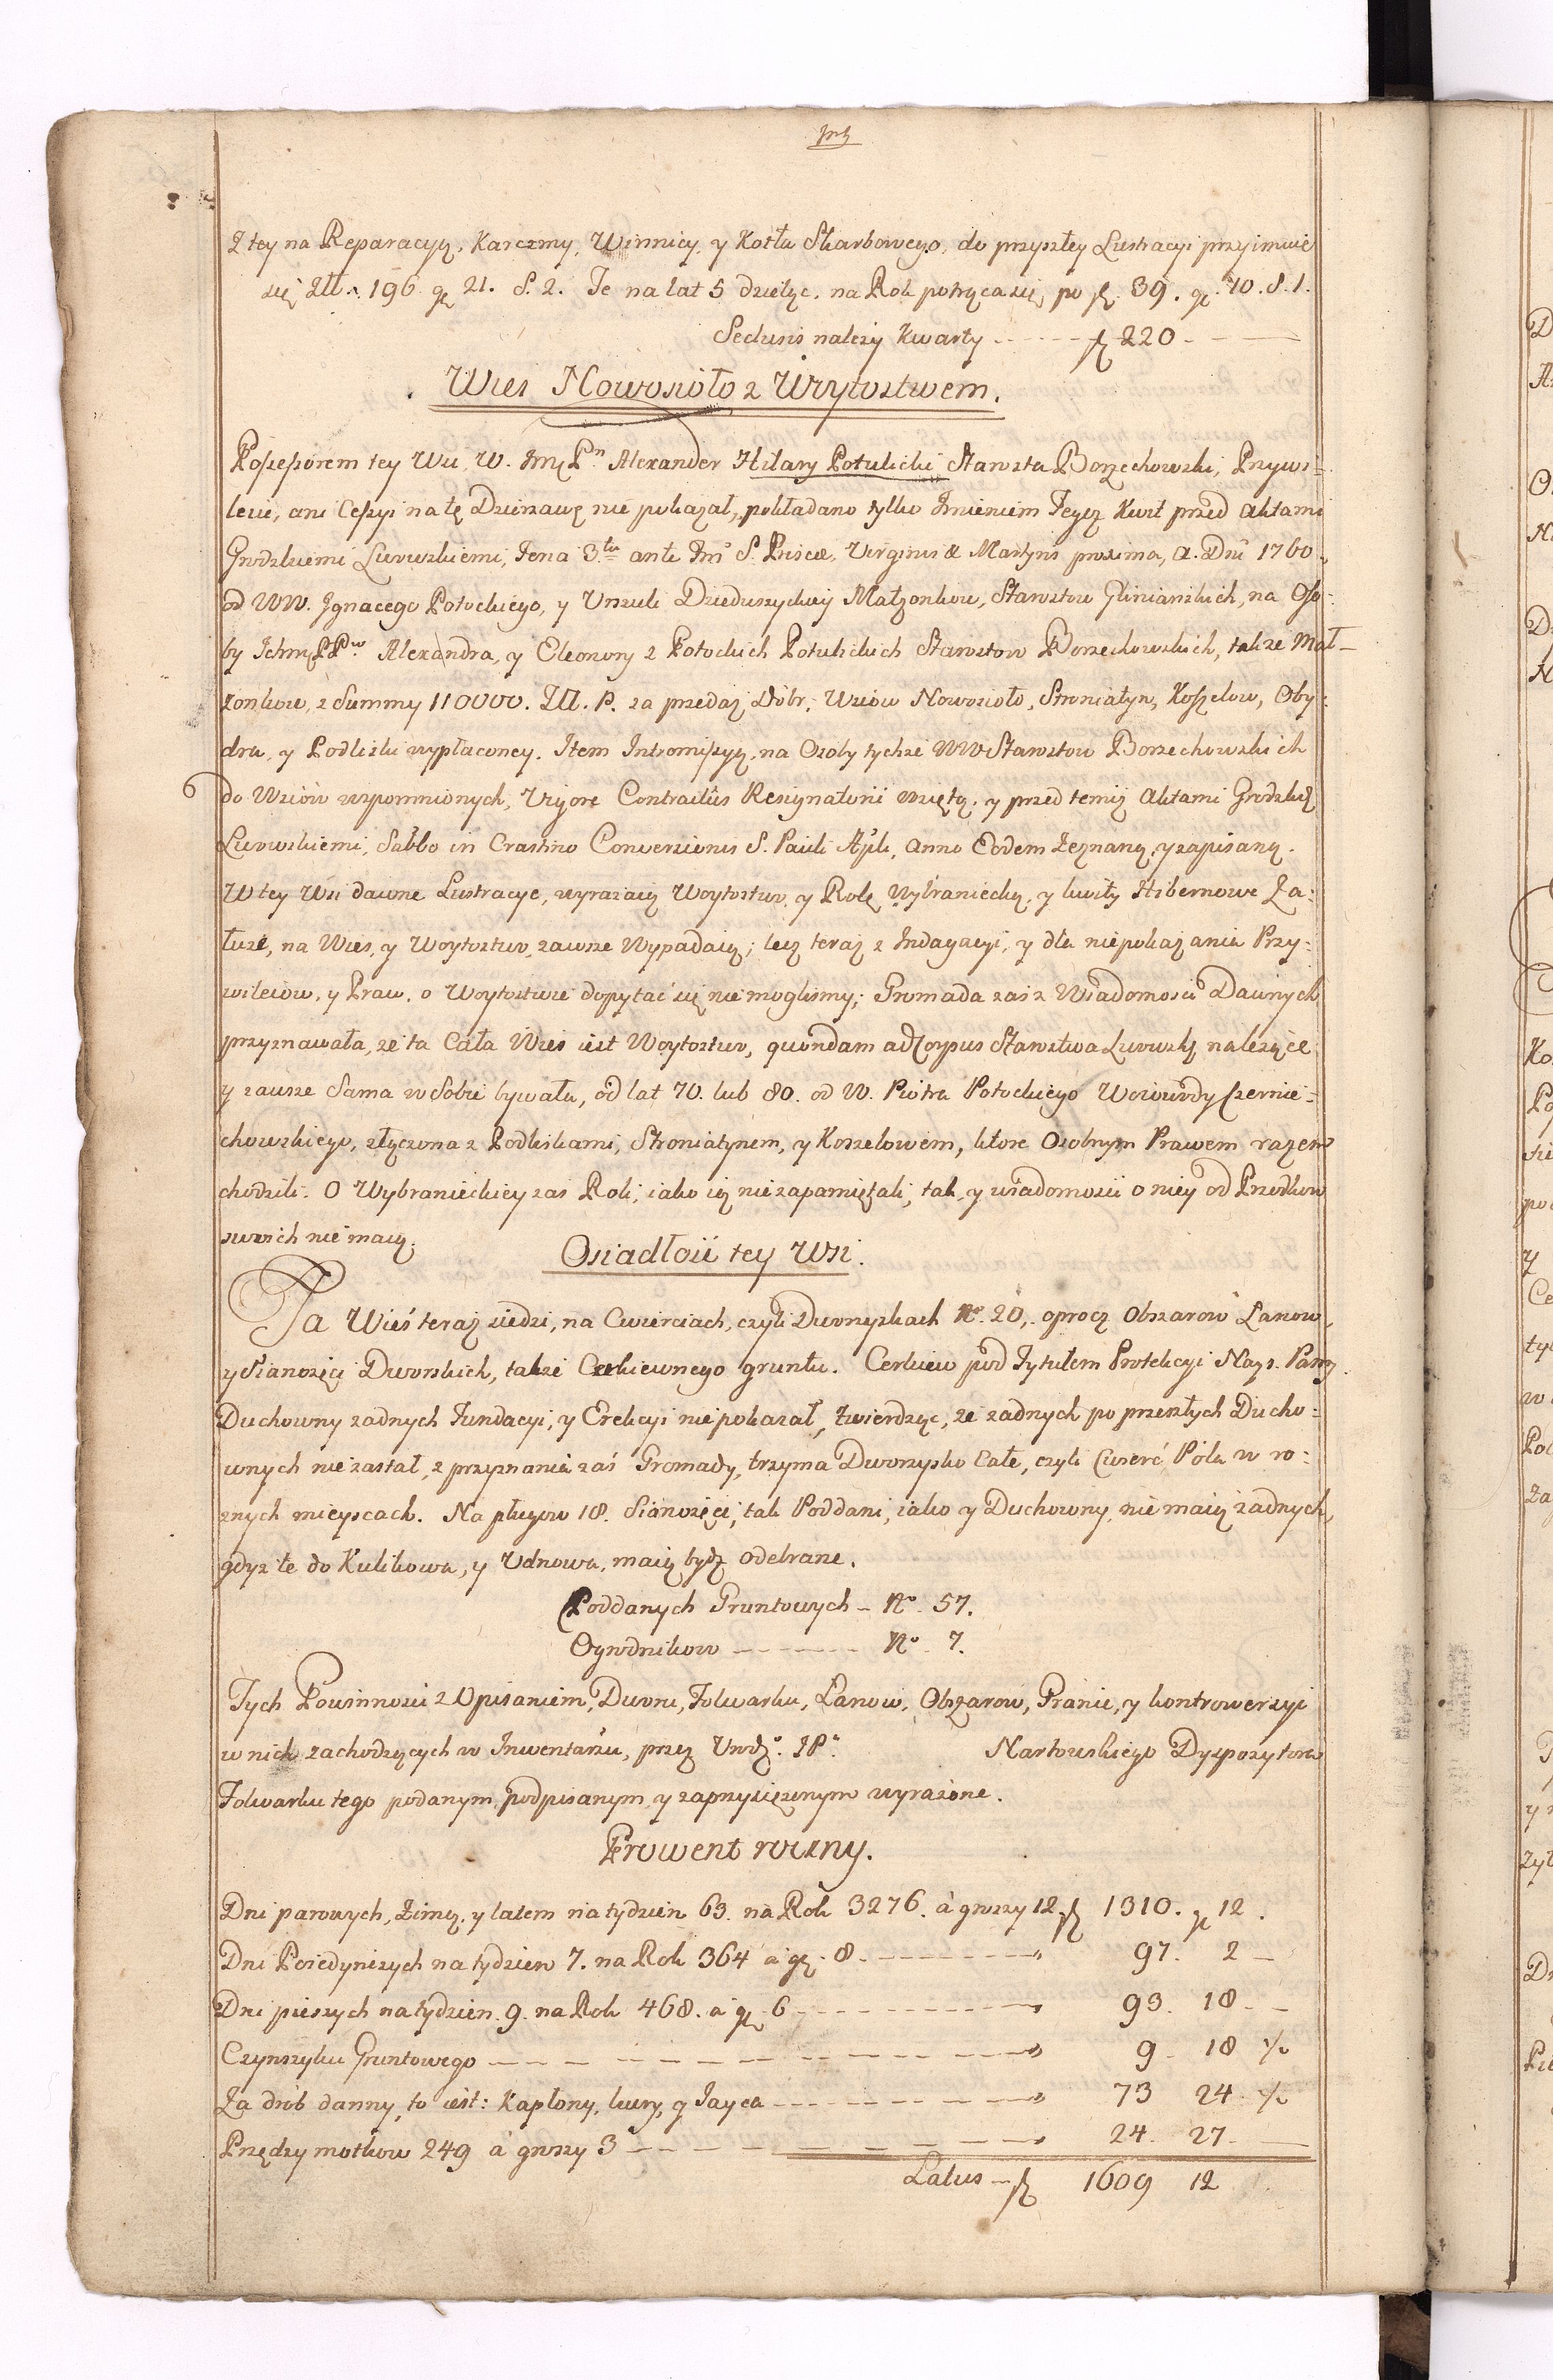 Z tey na Reparacyą, Karczmy, Winnicy, y Kotła Skarbowego, do przyszłey Lustracyi przyimuie
się Złł. 196 gr 21. S. 2. Te na lat 5 dzieląc, na Rok potrąca się, po fl. 39. gr. 10. S. 1.
Seclusis należy Kwarty ---- fl 220 ---
Wies Nowosioło z Woytostwem.
Possessorem tey Wsi, W. Jmć Pn Alexander Hilary Potulicki Starosta Borzechowski, Przywi=
leiu, ani Cessyi na tę Dzierzawę nie pokazał, pokładano tylko Imieniem Jegoż Kwit przed Aktami
Grodzkiemi Lwowskiemi, Feria 3tia ante Fm S. Priscæ, Virginis & Martyris proxima, A. Dni 1760.
od WW. Ignacego Potockiego, y Urszuli Dzieduszyckiey Małżonkow, Starostow Gliniańskich, na Oso=
by Ichmć PPw Alexandra, y Eleonory z Potockich Potulickich Starostow Borzechowskich, także Mał=
żonkow, z Summy 110000. Złł. P. za przedaż Dóbr, Wsiow Nowosioło, Stroniatyn, Koszelow, Oby=
dra, y Podliski wypłaconey. Item Intromissyą, na Osoby tychże WW Starostow Borzechowskich
6 do Wsiow wzpomnionych, Vigore Contractûs Resignatorii wziętą, y przed temiż Aktami Grodzkiż
Lwowskiemi, Sabbo in Crastino Conversionis S. Pauli Apli, Anno Eodem Zeznaną, y zapisaną.
W tey Wsi dawne Lustracye, wyrażaią Woytostwo, y Rolę Wybraniecką, y kwity Hibernowe Za=
tusze, na Wies, y Woytostwo, zawsze Wypadaią; lecz teraz z Indagacyi, y dla niepokazania Przy=
wilejow, y Praw, o Woytostwie dopytać się nie mogliśmy; Gromada zaś z Wiadomości Dawnych
przyznawała, że ta Cała Wieś iest Woytostwo, quondam ad Corpus Starostwa Lwowskg należące
y zawsze Sama w Sobie bywała, od lat 70. lub 80. od W. Piotra Potockiego Woiewody Czernie=
chowskiego, złączona z Podliskami, Stroniatynem, y Koszelowem, ktore Osobnym Prawem razem
chodzili. O Wybranieckiey zaś Roli, iako ią nie zapamiętali, tak y wiadomości o niey od Przodkow
swoich nie maią.
Osiadłość tey Wsi.
Ta Wieś teraz siedzi, na Cwierciach, czyli Dworzyskach No. 20, oprocz Obszarow Łanow,
y Sianożęci Dworskich, także Cerkiewnego gruntu. Cerkiew pod Tytułem Protekcyi Nays. Panny.
Duchowny żadnych Fundacyi, y Erekcyi nie pokazał, twierdząc, że żadnych po przeszłych Ducho=
wnych nie zastał, z przyznania zaś Gromady, trzyma Dworzysko Całe, czyli Cwierć Pola w ro=
żnych mieyscach. Na pługow 18. Sianożęci, tak Poddani, iako y Duchowny, nie maią żadnych,
gdyz te do Kulikowa, y Udnowa, maią bydź odebrane.
Poddanych Gruntowych - No. 57.
Ogrodnikow ---- No. 7.
Tych Powinności z Opisaniem, Dworu, Folwarku, Łanow, Obszarow, Granic, y kontrowersyi
w nich zachodzących w Inwentarzu, przez Urodz. JP. Nartowskiego Dyspozytora
Folwarku tego podanym, podpisanym, y zaprzysiężonym wyrażone.
Prowent roczny.
Dni parowych, Zimą, y latem na tydzien 63. na Rok 3276. à groszy 12. fl 1310. gr 12.
Dni Poiedynczych na tydzien 7. na Rok 364 à gr. 8. ---- 97. 2 -
Dni pieszych na tydzien 9. na Rok 468. à gr. 6 ---- 93. 18 -
Czynszyku Gruntowego ---- 9. 18 ·/·
Za drób danny, to iest: Kapłony, kury, y Jayca ---- 73 24 ·/·
Przędzy motkow 249 à groszy 3 ---- 24. 27 -
Latus - fl 1609 12